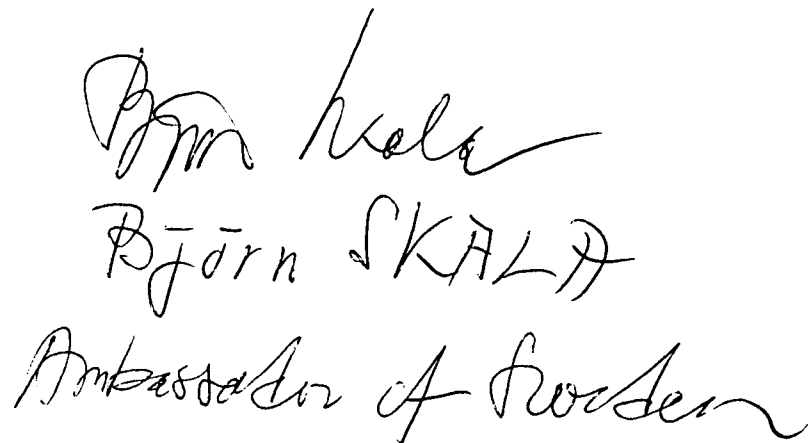 Björn Skala
Björn SKALA
Ambassador of Sweden